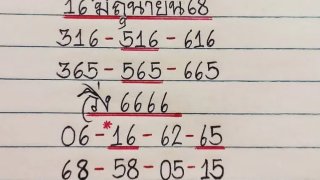 16 มิถุนายน 68
316-516-616
365-565-665
วิ่ง 6666
06-*16-62-65
68-58-05-15